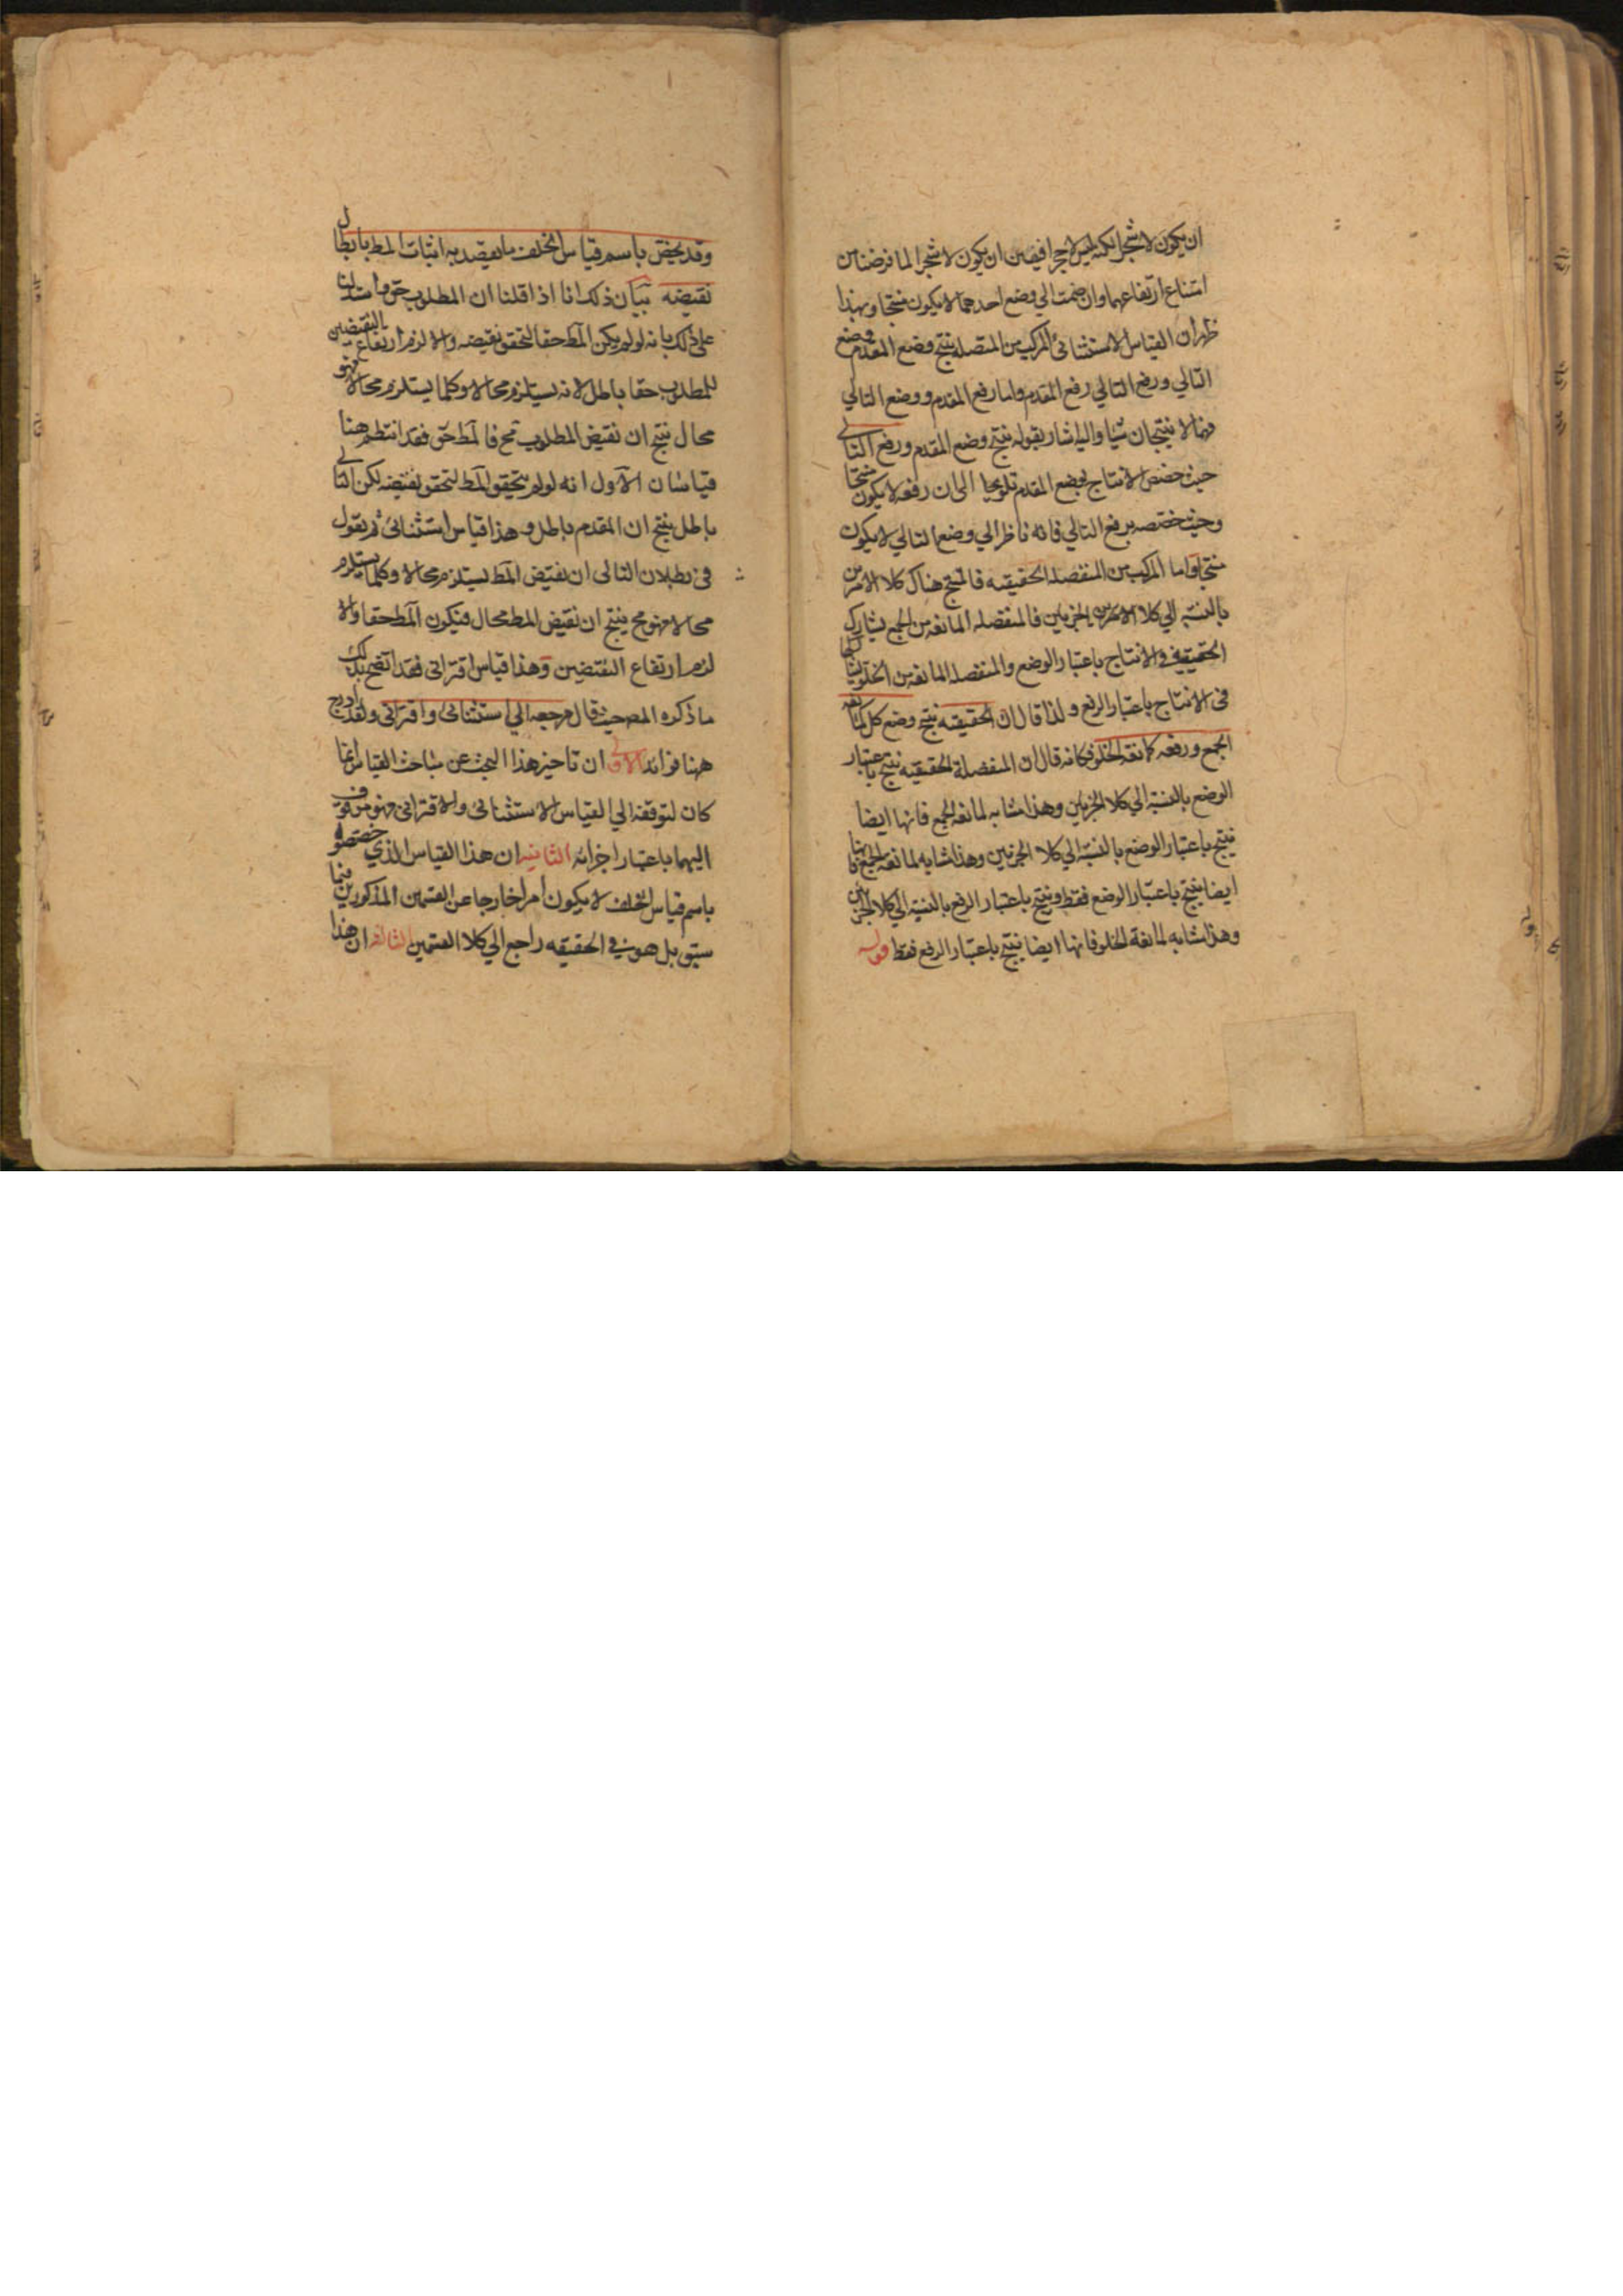 ان يكون لا شجرا لكنه ليس لاحجرا فيتعين ان يكون لا شجرا لما فرضنا من
امتناع ارتفاعهما وان ضمت الي وضع احدهما لا يكون منتجا وبهذا
ظهر ان القياس الاستثنائي المركب من المتصلة ينتج وضع المقدم وضع
التالي ورفع التالي رفع المقدم واما رفع المقدم ووضع التالي
فهما لا ينتجان شيا واليه اشار بقوله ينتج وضع المقدم ورفع التالي
حيث خصص الانتاج بوضع المقدم تلويحا الى ان رفعه لا يكون منتجا
وحيث خصصه برفع التالي فانه ناظر الي وضع التالي لا يكون
منتجا واما المركب من المنفصله الحقيقيه فالمنتج هناك كلا الامرين
بالنسبه الي كلا الجزئين فالمنفصله المانعه من الجمع يشارك
الحقيقيه في الانتاج باعتبار الوضع والمنفصله المانعه من الخلو يشاركها
فى الانتاج باعتبار الرفع ولذا قال ان الحقيقيه ينتج وضع كل كمانعه
الجمع ورفعه كمانعه الخلو فكانه قال ان المنفصلة الحقيقيه ينتج باعتبار
الوضع بالنسبه الي كلا الجزئين وهذا مشابه لمانعه الجمع فانها ايضا
ينتج باعتبار الوضع بالنسبه الي كلا الجزئين وهذا مشابه لمانعه الجمع فانها
ايضا ينتج باعتبار الوضع فقط وينتج باعتبار الرفع بالنسبه الي كلا الجزئين
وهذا مشابه لمانعة الخلو فانها ايضا ينتج باعتبار الرفع فقط قوله
وقد يختص باسم قياس الخلف ما يقصد به اثبات المط بابطال
نقيضه بيان ذلك انا اذا قلنا ان المطلوب حق واستدللنا
على ذلك بانه لو لم يكن المط حقا لتحقق نقيضه والا لزم ارتفاع النقيضين
للمطلوب حقا باطل لانه يستلزم محالا وكلما يستلزم محالا فهو
محال ينتج ان نقيض المطلوب مح فالمط حق فقد انتظم هنا
قياسان الاول انه لو لم يتحقق المط لتحقق نقيضه لكن التالي
باطل ينتج ان المقدم باطل وهذا قياس استثنائى ثم يقول
فى بطلان التالى ان نقيض المط يستلزم محالا وكلما يستلزم
محالا فهو مح ينتج ان نقيض المط محال فيكون المط حقا والا
لزم ارتفاع النقيضين وهذا قياس اقترانى فقد اتضح بذلك
ما ذكره المص حيث قال مرجعه الي استثنائى واقترانى ولقد ادرج
ههنا فوائد الاولى ان تاخير هذا البحث عن مباحث القياس انما
كان لتوقفه الي القياس الاستثنائى والاقترانى فهو موقوف
اليهما باعتبار اجزائه الثانيه ان هذا القياس الذي خصصوه
باسم قياس الخلف لا يكون امرا خارجا عن القسمين المذكورين فيما
سبق بل هو في الحقيقه راجع الي كلا القسمين الثالثه ان هذا